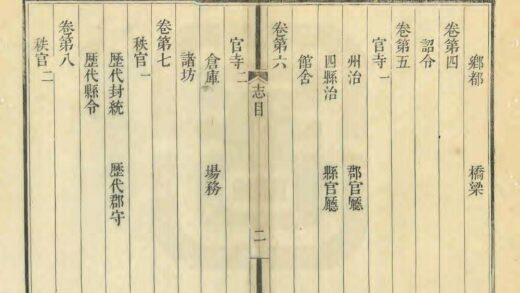 鄉都 橋梁
卷第四
詔令
卷第五
官寺一
州治 郡官廳
四縣治 縣官廳
館舍
卷第六
志目 二
官寺二
倉庫 場務
諸坊
卷第七
秩官一
歷代封統 歷代郡守
歷代縣令
卷第八
秩官二